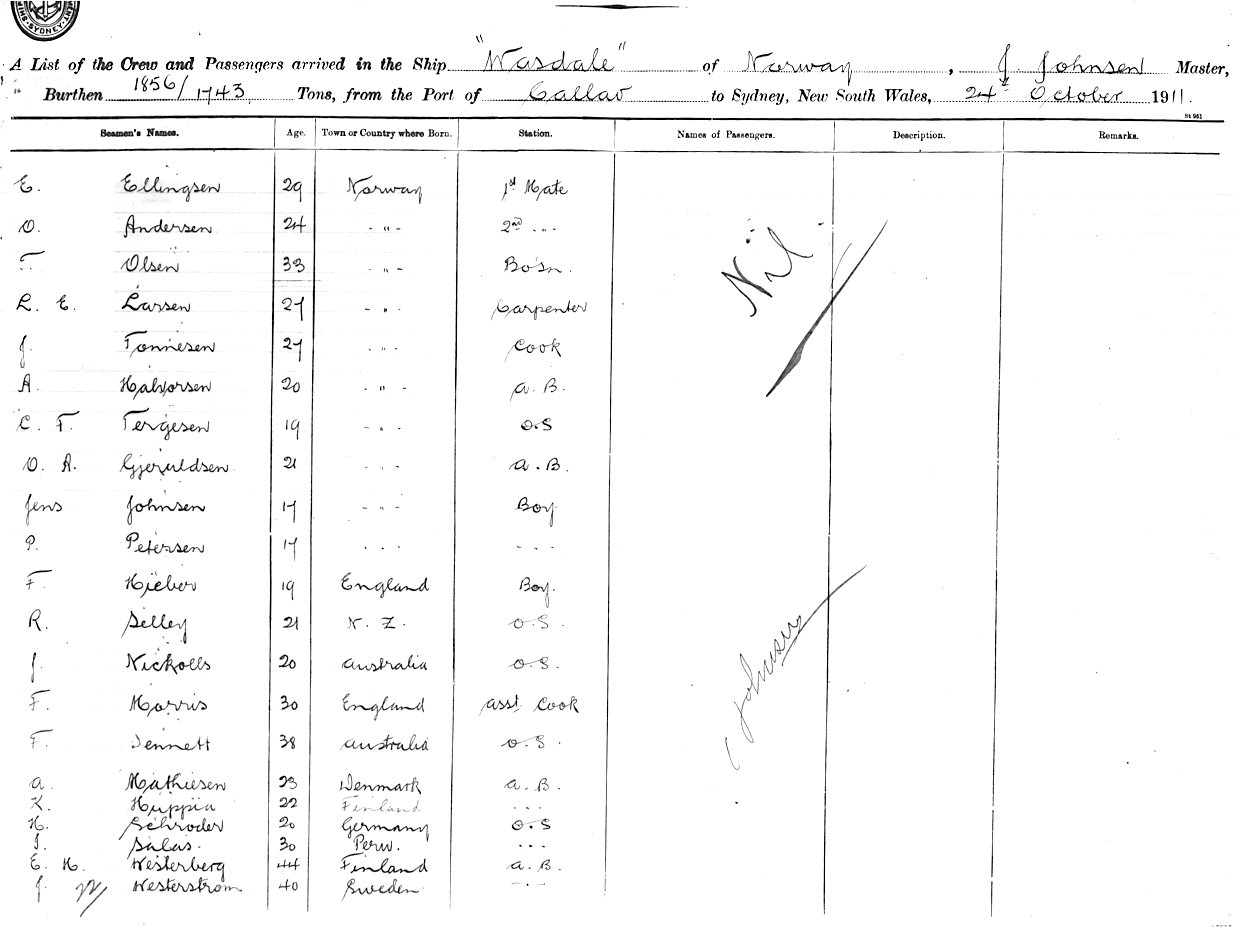 SYDNEY
A List of the Crew and Passengers arrived in the Ship "Wasdale" of Norway, J. Johnsen Master,
Burthen 1856/1743 Tons, from the Port of Callao to Sydney, New South Wales, 24th October 1911.
St 961
Seamen's Names. Age. Town or Country where Born. Station. Names of Passengers. Description. Remarks.
E. Ellingsen 29 Norway 1st Mate
O. Andersen 24 - " - 2nd ...
T. Olsen 33 - " - Bosn.
R. E. Larsen 27 - " - Carpenter
J. Tonnesen 27 - " - Cook
A. Halvorsen 20 - " - A. B.
C. F. Tergesen 19 - " - O.S
O. A. Gjeruldsen 21 - " - A. B.
Jens Johnsen 17 - " - Boy
P. Petersen 17 - - - - - -
F. Hieber 19 England Boy.
R. Selley 21 N. Z. O. S.
J. Nickolls 20 Australia O. S.
F. Morris 30 England Asst Cook
F. Dennett 38 Australia O. S.
A. Mathiesen 23 Denmark A. B.
K. Huppia 22 Finland - - -
H. Schroder 20 Germany O. S
I. Salas. 30 Peru. - - -
E. H. Westerberg 44 Finland A. B.
J. Westerstrom 40 Sweden - - -
Nil
J Johnsen